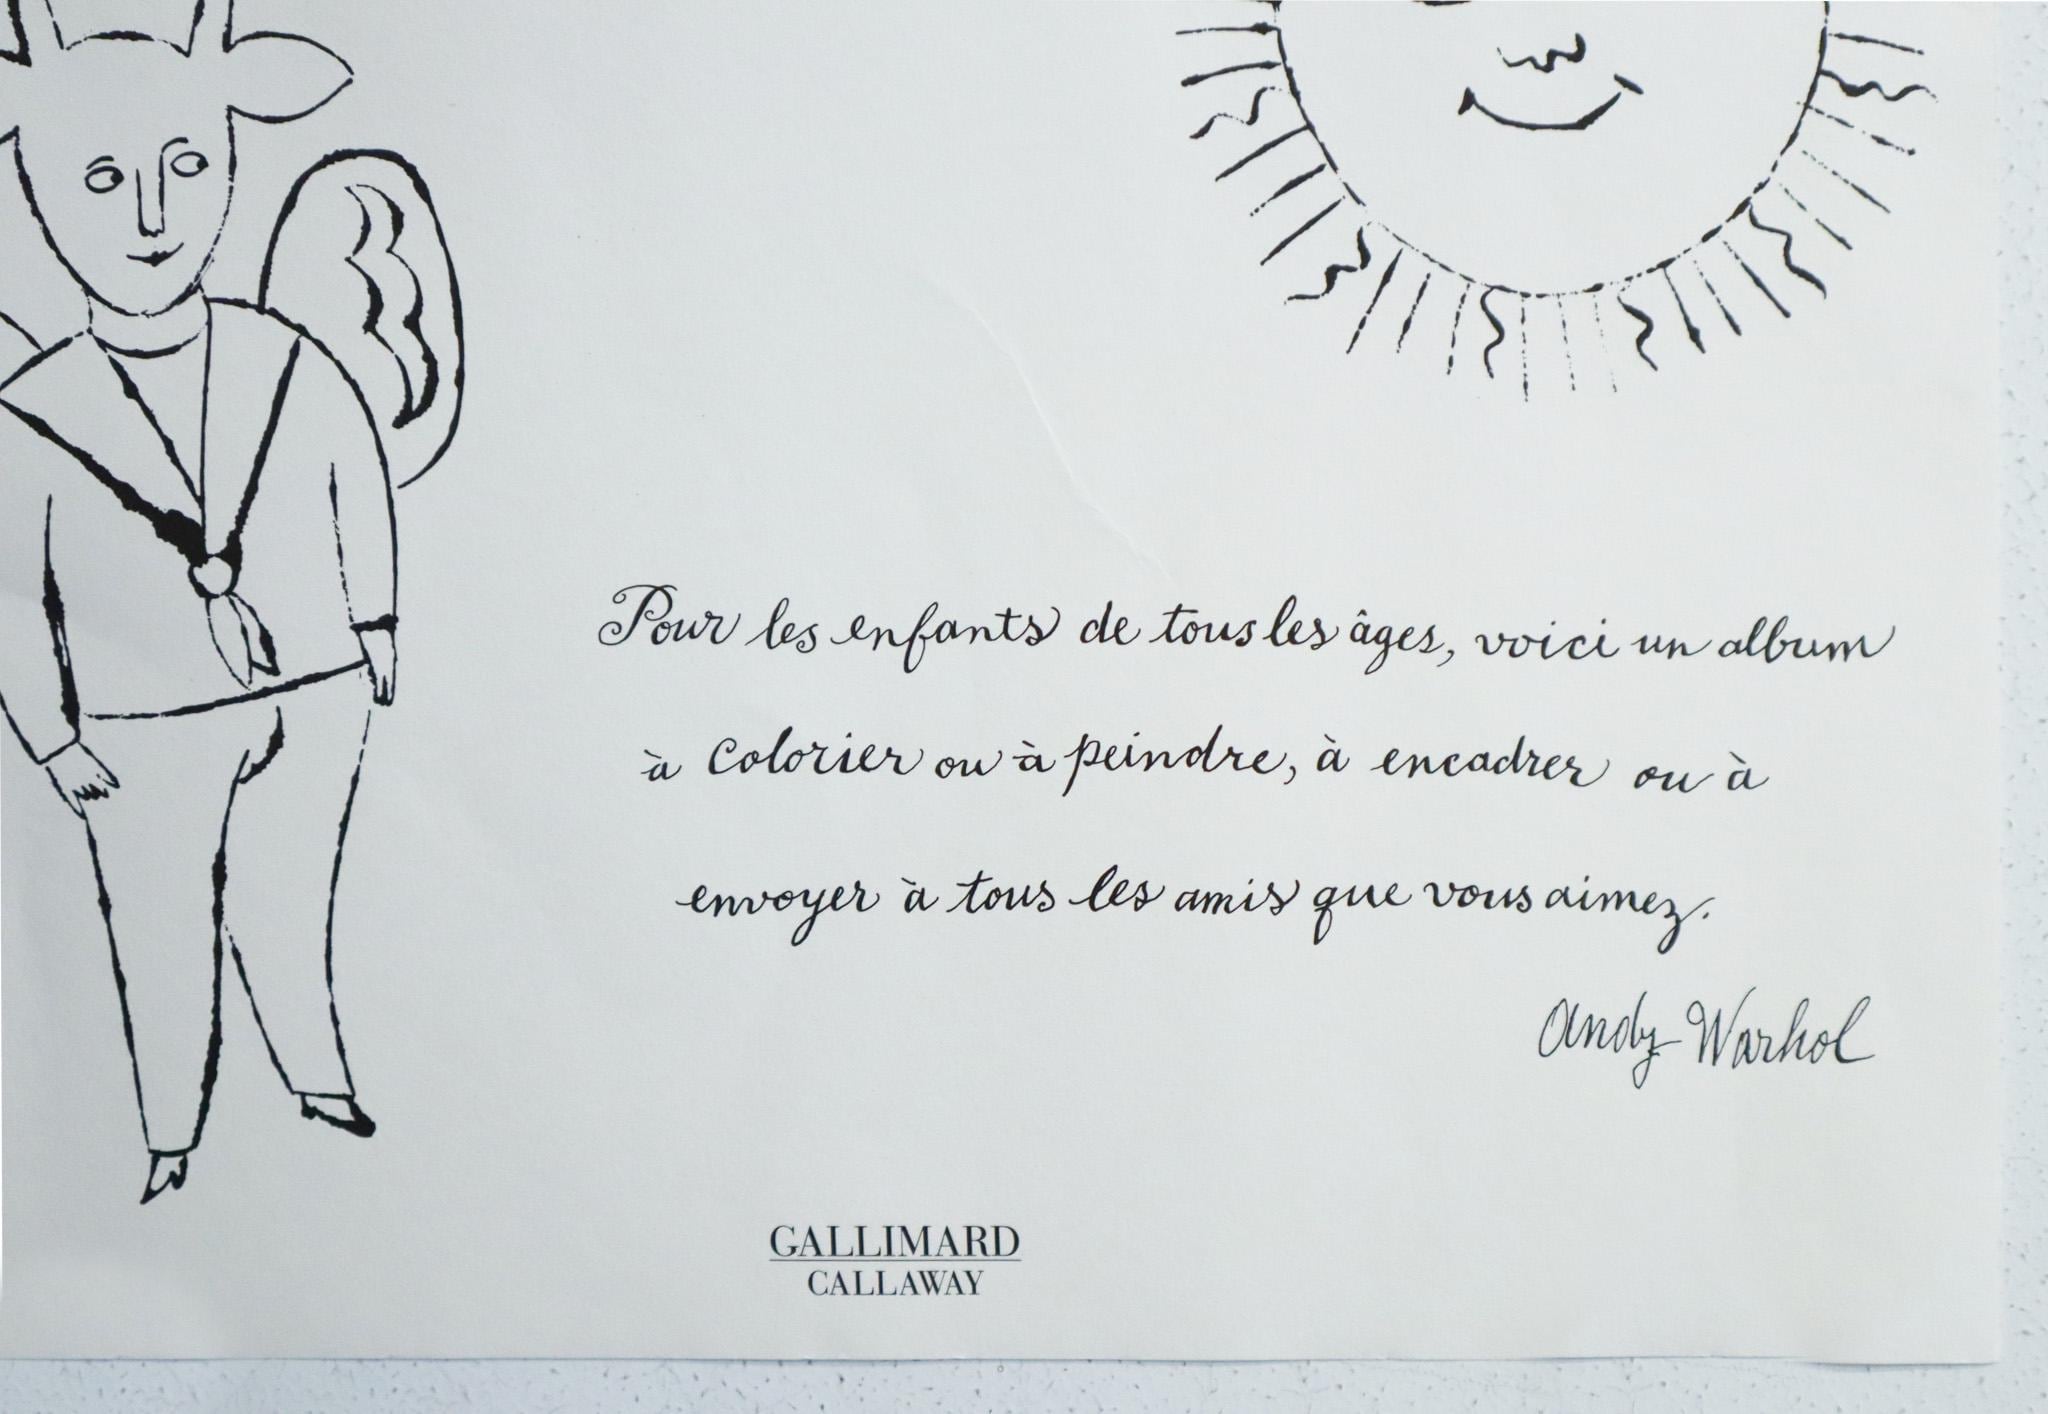 Pour les enfants de tous les âges, voici un album
à colorier ou à peindre, à encadrer ou à
envoyer à tous les amis que vous aimez.
Andy Warhol
GALLIMARD
CALLAWAY